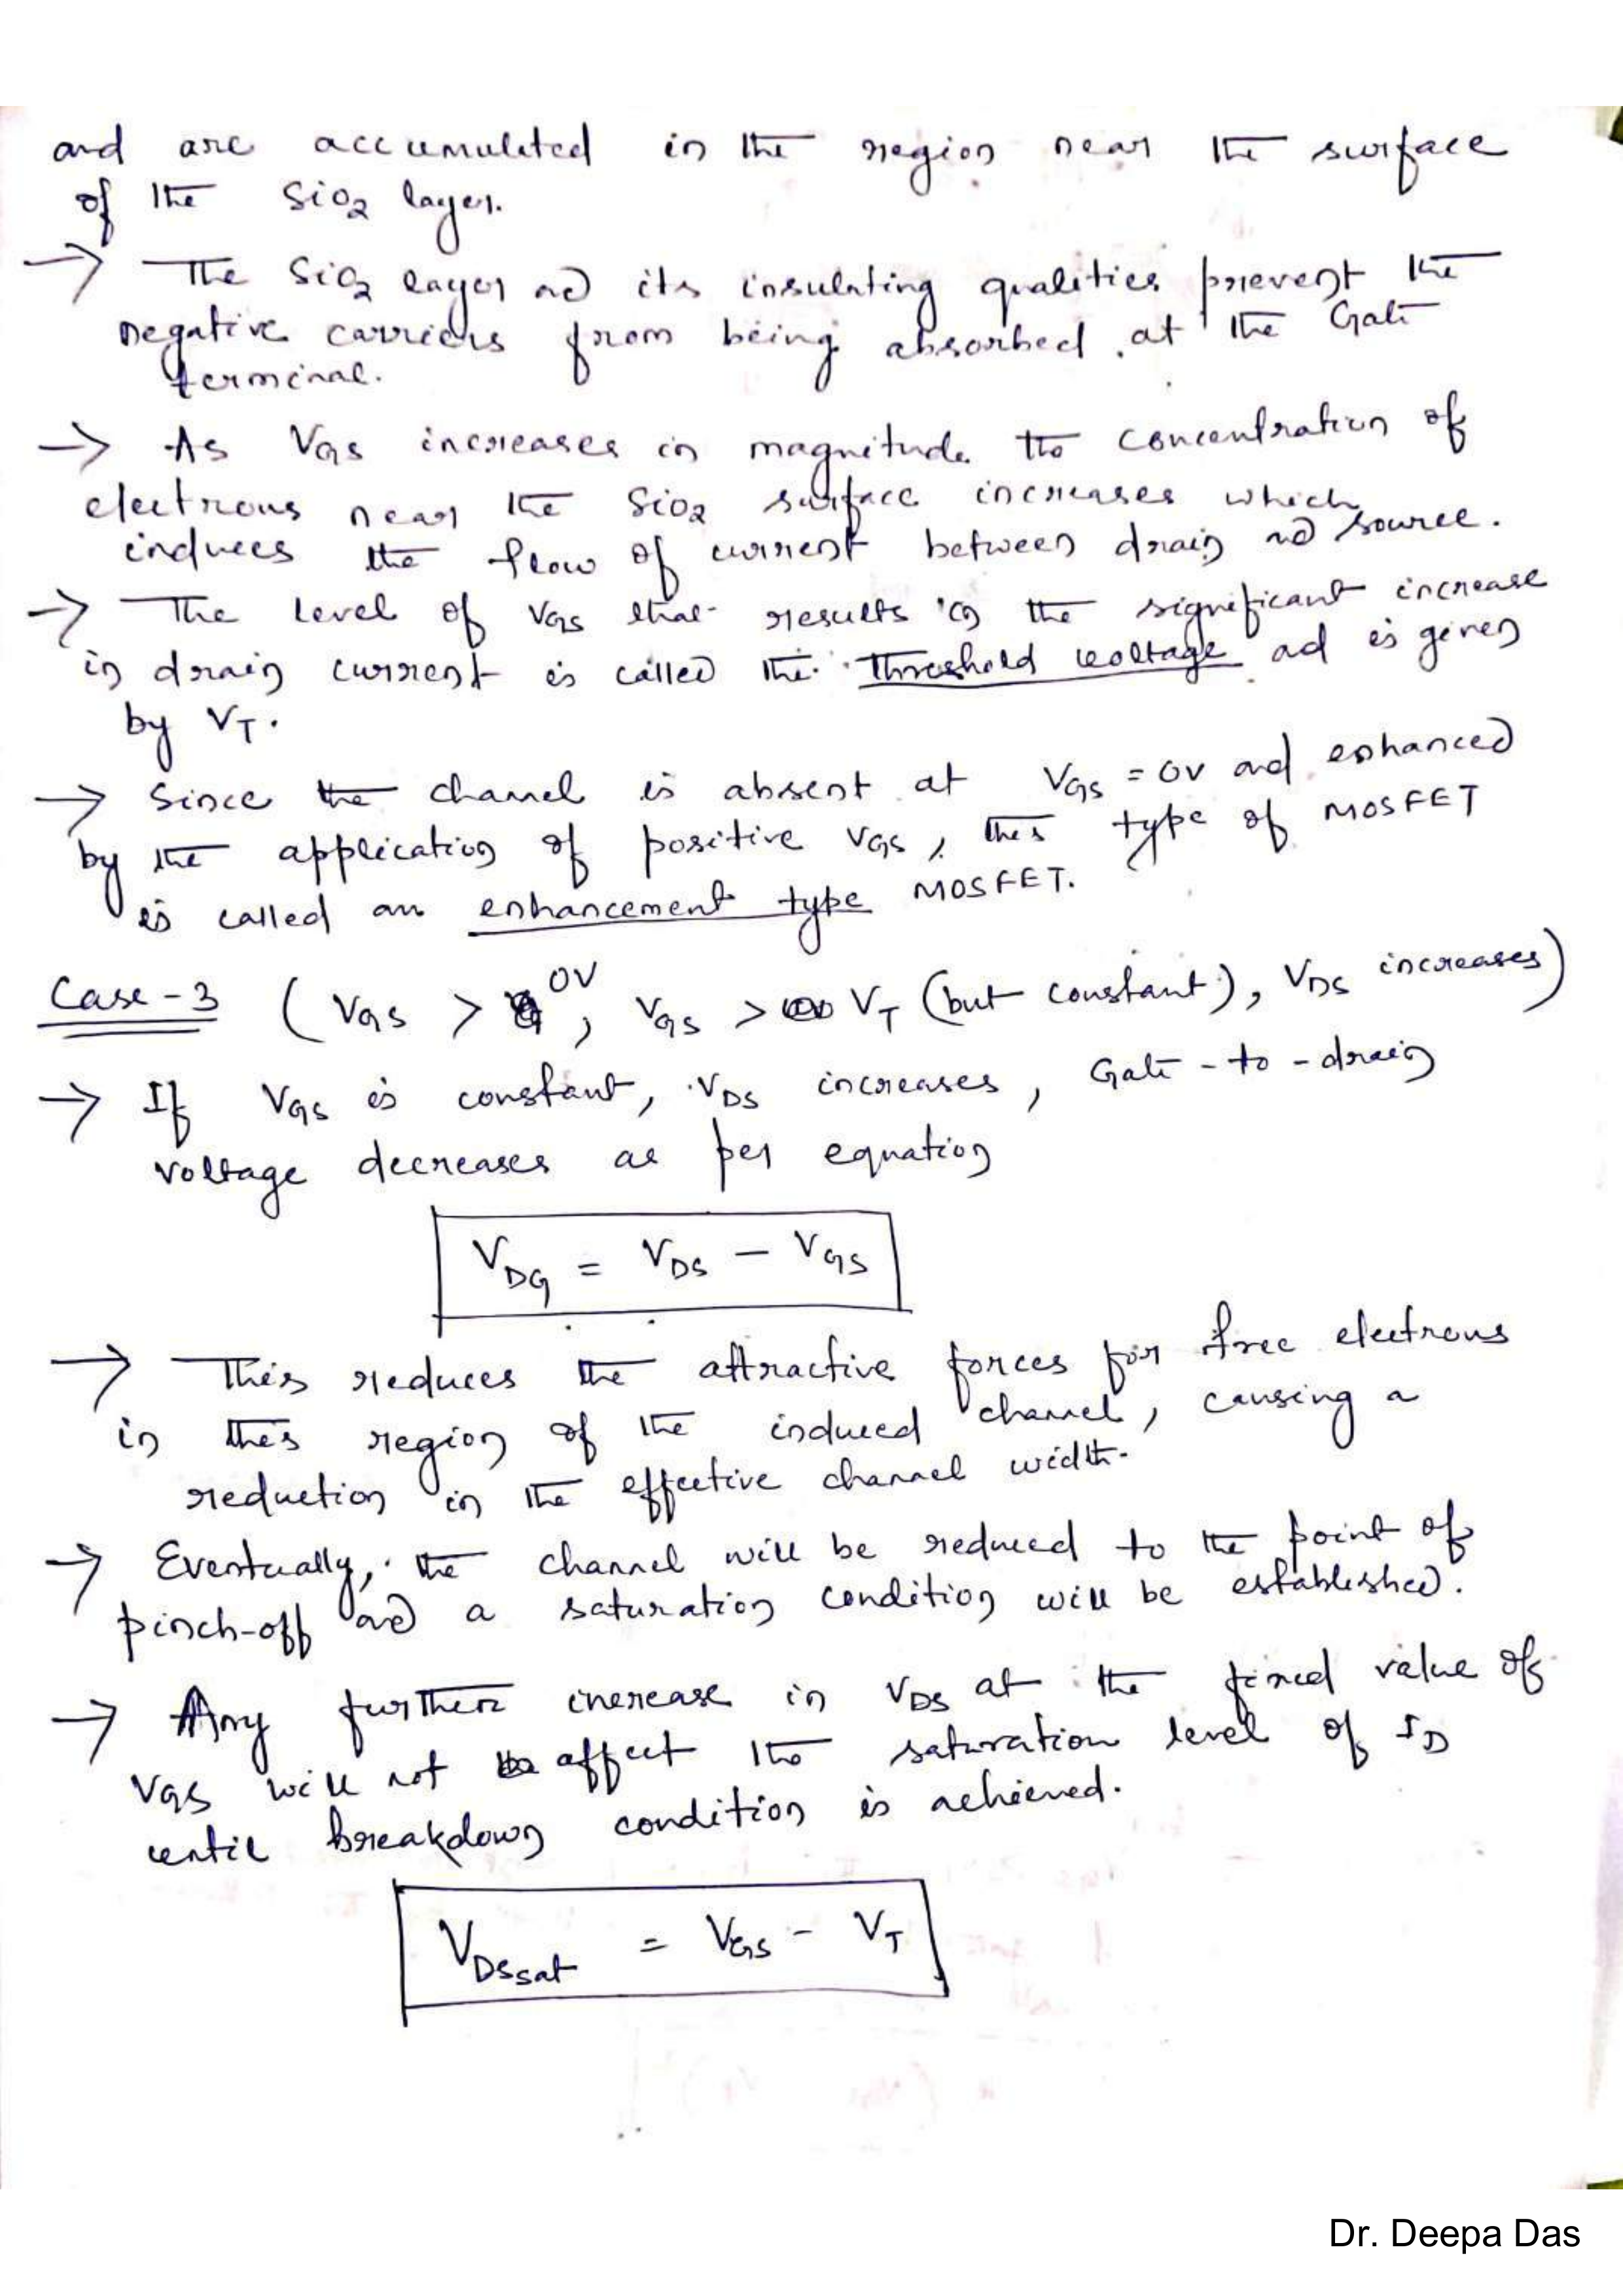 and are accumulated in the region near the surface
of the SiO2 layer.
→ The SiO2 layer and its insulating qualities prevent the
negative carriers from being absorbed at the Gate
terminal.
→ As VGS increases in magnitude the concentration of
electrons near the SiO2 surface increases which
induces the flow of current between drain and source.
→ The level of VGS that results in the significant increase
in drain current is called the threshold voltage ad is given
by VT.
→ Since the channel is absent at VGS = 0V and enhanced
by the application of positive VGS, this type of MOSFET
is called an enhancement type MOSFET.
Case-3 (VGS > 0V, VGS > VT (but constant), VDS increases)
→ If VGS is constant, VDS increases, Gate-to-drain
voltage decreases as per equation
VDG = VDS - VGS
→ This reduces the attractive forces for free electrons
in this region of the induced channel, causing a
reduction in the effective channel width.
→ Eventually, the channel will be reduced to the point of
pinch-off and a saturation condition will be established.
→ Any further increase in VDS at the fixed value of
VGS will not affect the saturation level of ID
until breakdown condition is achieved.
VDSsat = VGS - VT
Dr. Deepa Das